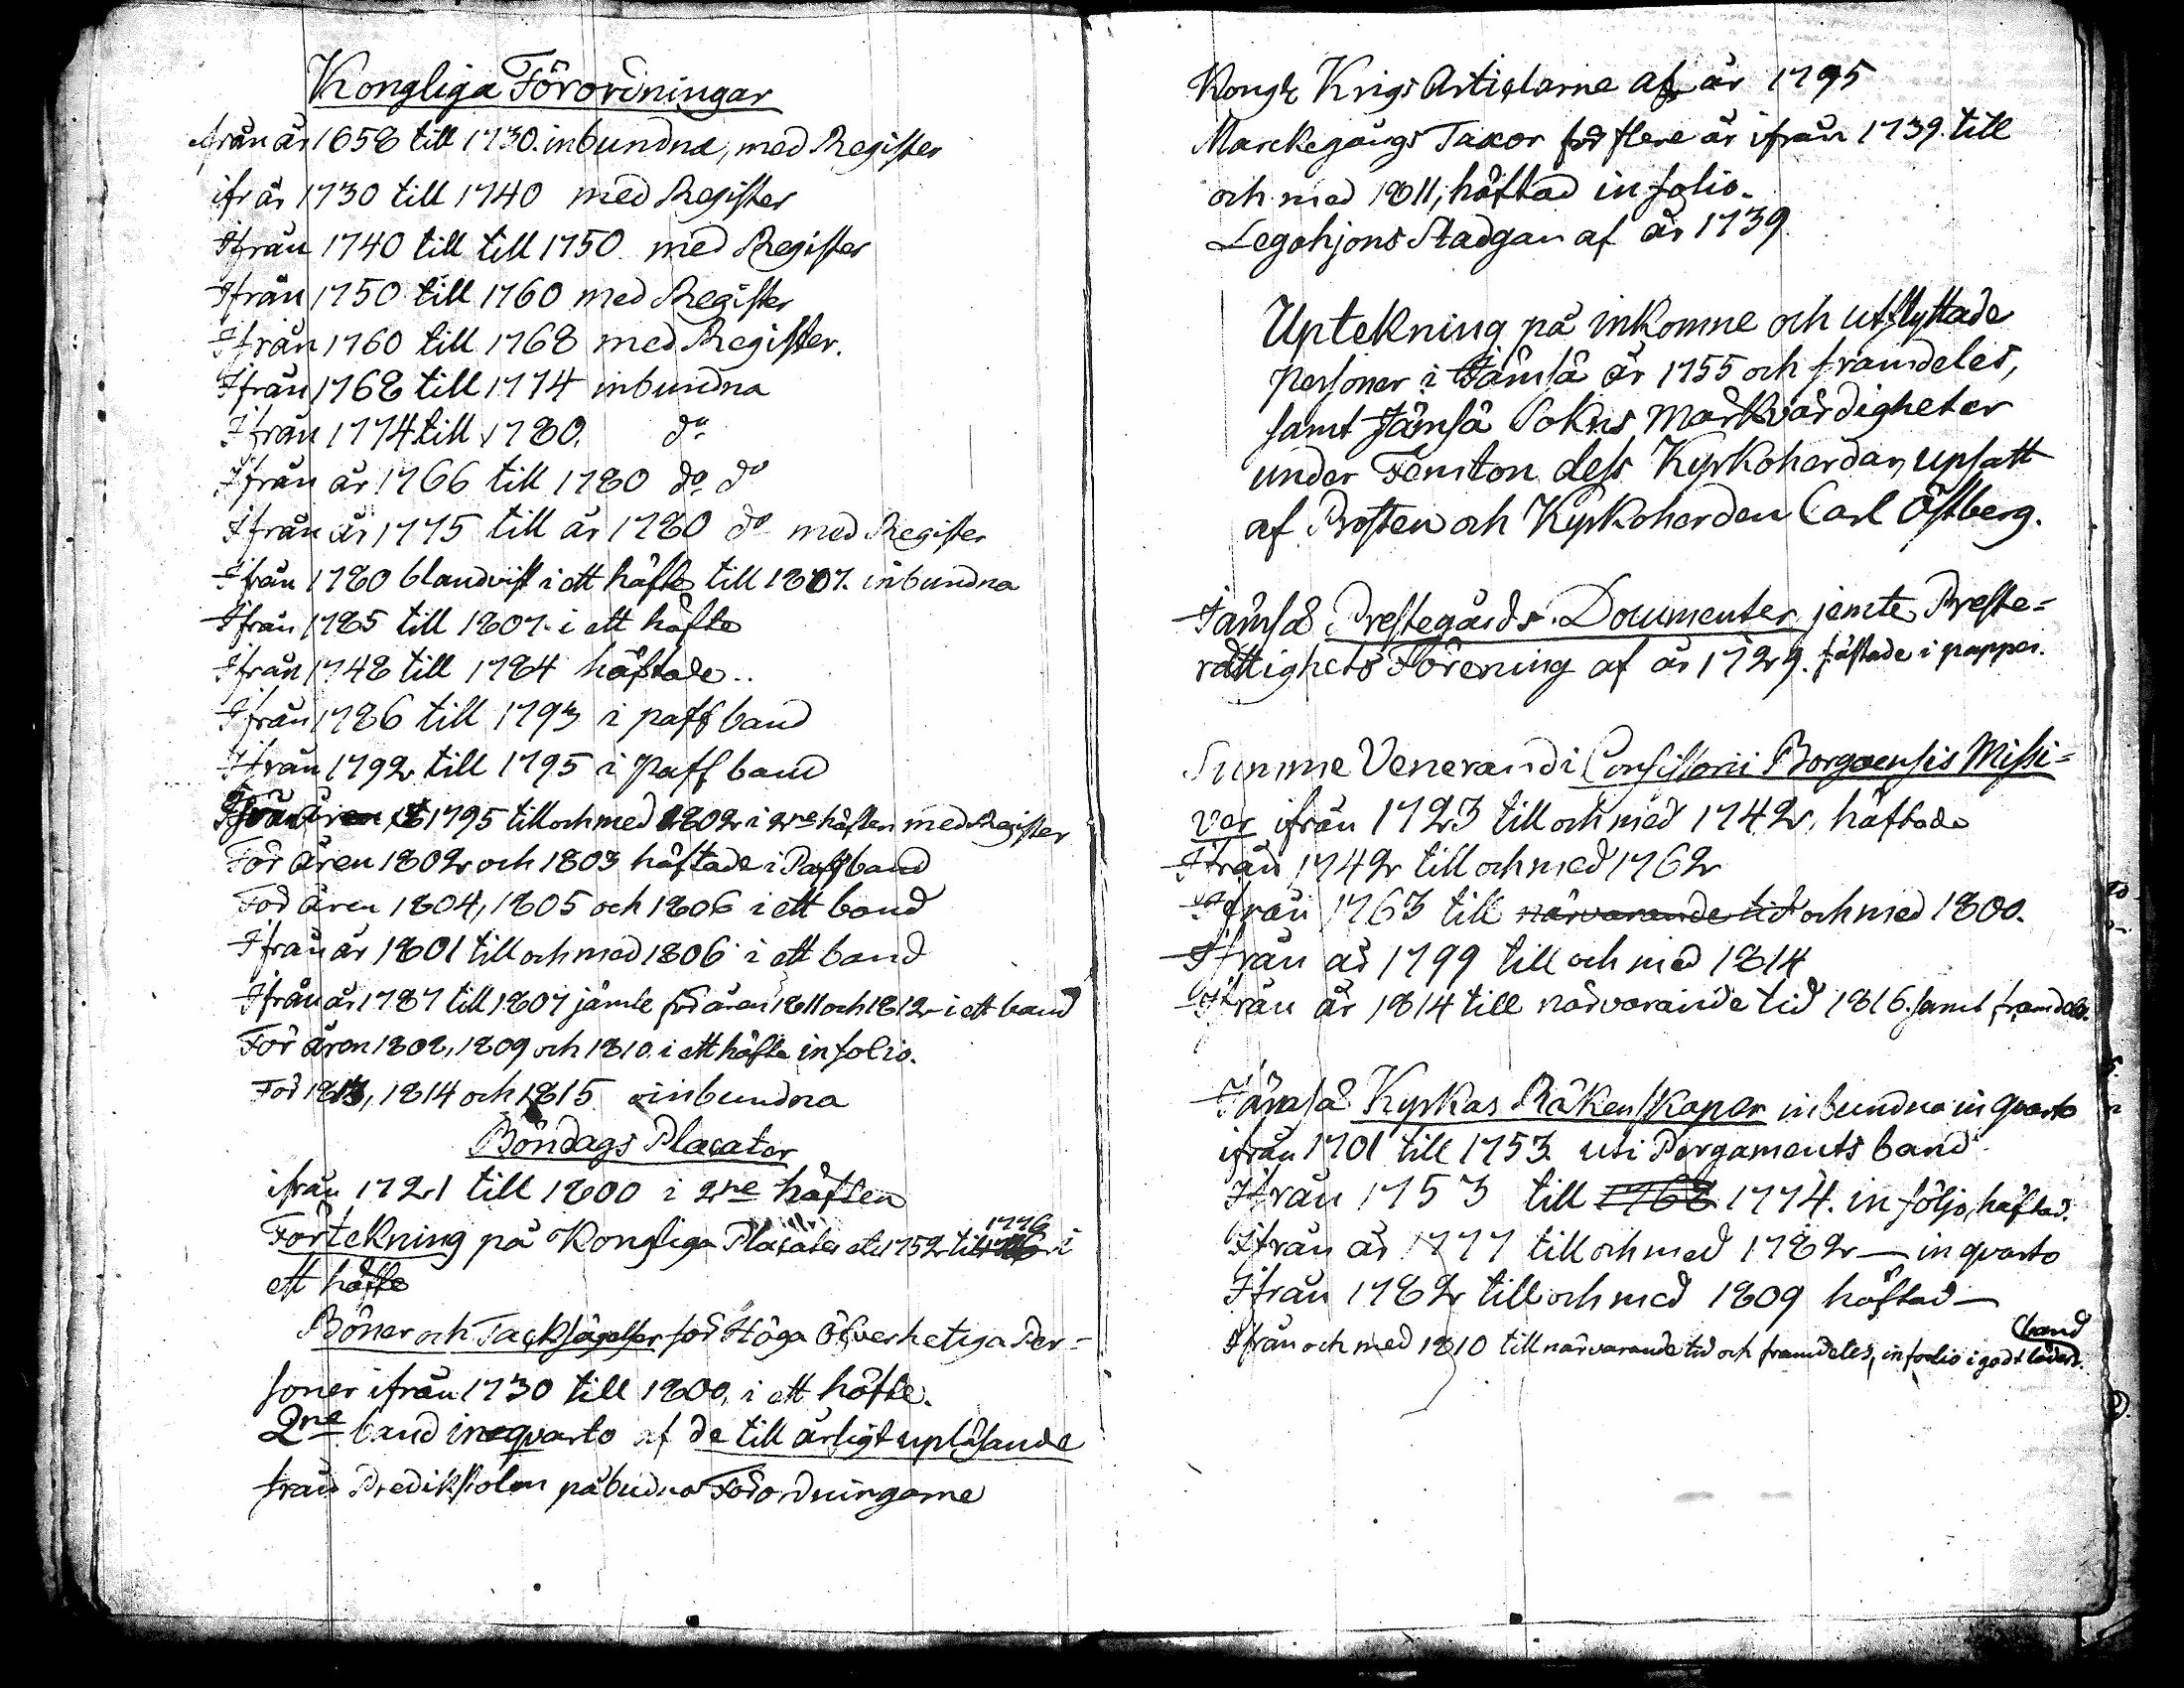 Kongliga Förordningar
ifrån år 1658 till 1730. inbundna, med Register
ifr år 1730 till 1740 med Register
Ifrån 1740 till till 1750 med Register
Ifrån 1750 till 1760 med Register
Ifrån 1760 till 1768 med Register.
Ifrån 1768 till 1774 inbundna
Ifrån 1774 till 1780. do
Ifrån år 1766 till 1780 do do
Ifrån år 1775 till år 1780 do med Register
Ifrån 1780 blandvist i ett häfte till 1807. inbundna
Ifrån 1785 till 1807. i ett häfte
Ifrån 1748 till 1784 häftade..
Ifrån 1786 till 1793 i paff band
Ifrån 1792 till 1795 i paff band
1795 till och med 1802 i 2ne häften med Register
För åren 1802 och 1803 häftade i Paffband
För åren 1804, 1805 och 1806 i ett band
Ifrån år 1801 till och med 1806 i ett band
Ifrån år 1787 till 1807 jämte för åren 1811 och 1812 i ett band
För åren 1808, 1809 och 1810. i ett häfte in folio.
För 1813, 1814 och 1815 oinbundna
Böndags Placater
ifrån 1721 till 1800 i 2ne häften
Förtekning på Kongliga Placater 1752 till 1776 i
ett häfte
Böner och Tacksägelser för Höga Öfverhetiga Per-
soner ifrån 1730 till 1800, i ett häfte.
2ne band in quarto af de till årligt upläsande
från Predikstolen påbudna Förordningarne
Kongl. Krigs Articlarne af år 1795
Marckegångs Taxor för flere år ifrån 1739 till
och med 1811, häftad in folio.
Legohjons Stadgan af år 1739
Uptekning på inkomne och utflyttade
personer i Jämsä år 1755 och framdeles,
samt Jämsä Sokns Märkvärdigheter
under Femton dess Kyrkoherdar, upsatt
af Prosten och Kyrkoherden Carl Östberg.
Jämsä Prestegårds Documenter jemte Preste-
rättighets Förening af år 1729. häftade i papper.
Summe Venerandi Consistorii Borgoensis Missi-
ver ifrån 1723 till och med 1742, häftade
Ifrån 1742 till och med 1762
Ifrån 1763 till närvarande tid och med 1800.
Ifrån år 1799 till och med 1814
Ifrån år 1814 till närvarande tid 1816. samt framdeles.
Jämsä Kyrkas Räkenskaper inbundna in quarto
ifrån 1701 till 1753. uti Pergaments band
Ifrån 1753 till 1768 1774. in folio, häftad.
Ifrån år 1777 till och med 1782 — in quarto
Ifrån 1782 till och med 1809 häftad —
Ifrån och med 1810 till närvarande tid och framdeles, in folio i godt läder
band